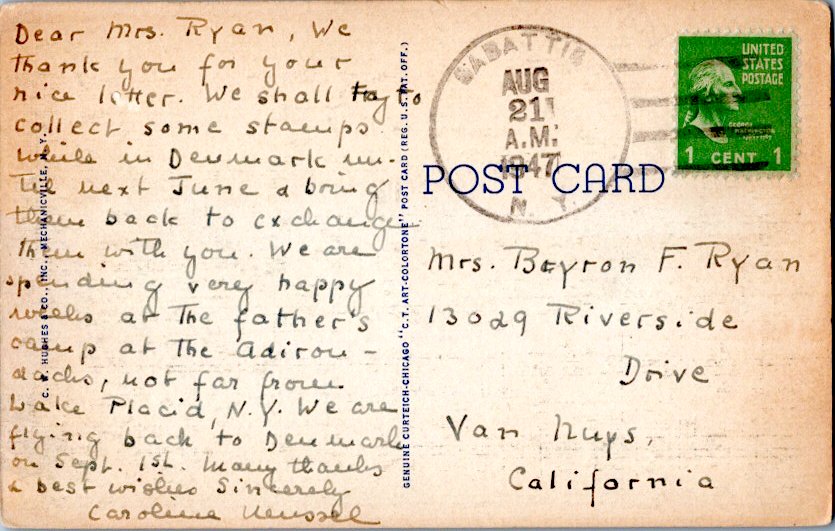 Dear Mrs. Ryan, We
thank you for your
nice letter. We shall try to
collect some stamps
while in Denmark un-
til next June & bring
them back to exchange
them with you. We are
spending very happy
weeks at the father's
camp at the Adiron-
dacks, not far from
Lake Placid, N.Y. We are
flying back to Denmark
on Sept. 1st. Many thanks
& best wishes Sincerely
Caroline
C. W. HUGHES & CO., INC., MECHANICVILLE, N. Y.
GENUINE CURTEICH-CHICAGO "C.T. ART-COLORTONE" POST CARD (REG. U.S. PAT. OFF.)
SABATTIS
AUG
21
A.M.
1947
N. Y.
UNITED
STATES
POSTAGE
GEORGE
WASHINGTON
1 CENT 1
POST CARD
Mrs. Bryron F. Ryan
13029 Riverside
Drive
Van Nuys,
California